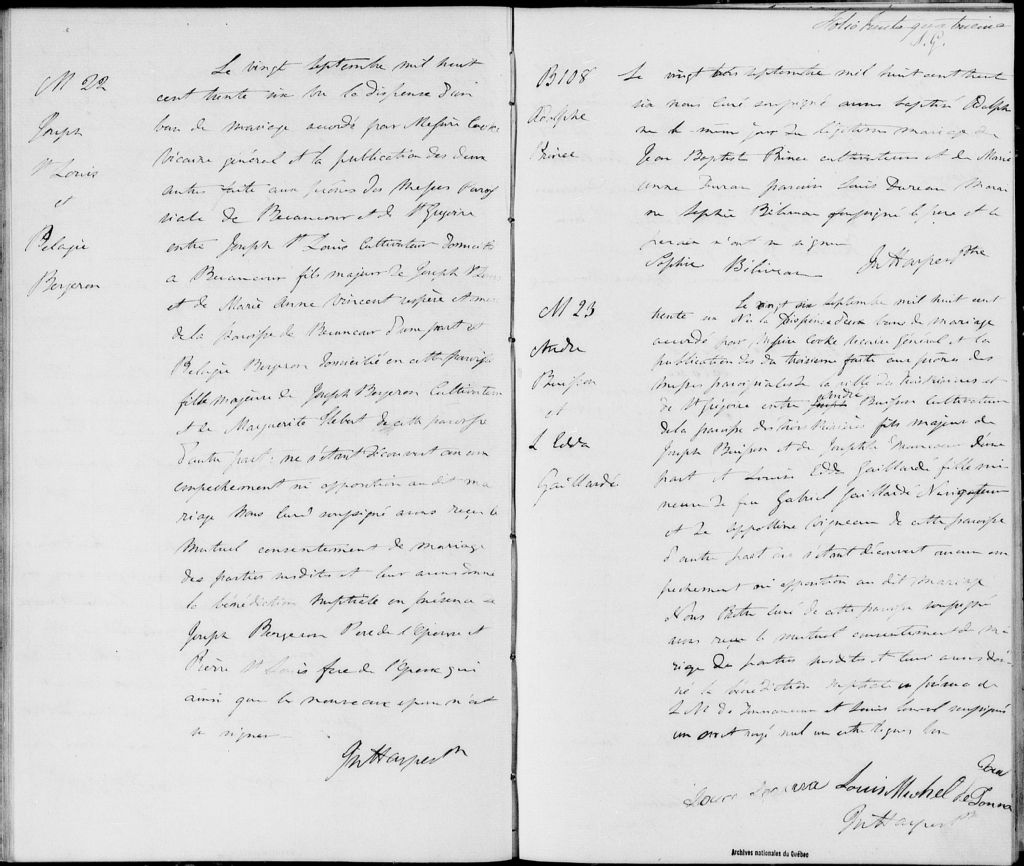 M 22
Joseph
St Louis
et
Pelagie
Bergeron
Le vingt septembre mil huit
cent trente six vu la dispense d'un
ban de mariage accordé par Messire Cooke
Vicaire général et la publication des deux
autres faite aux prônes des Messes Parois
siale de Becancour et de St Gregoire
entre Joseph St Louis Cultivateur domicilié
a Becancour fils majeur de Joseph St Louis
et de Marie Anne Vincent
de la paroisse de Becancour d'une part et
Pelagie Bergeron domiciliée en cette paroisse
fille majeure de Joseph Bergeron Cultivateur
et de Marguerite Hebert de cette paroisse
d'autre part: ne s'étant découvert aucun
empechement ni opposition au dit ma
riage Nous Curé soussigné avons reçu le
Mutuel consentement de mariage
des parties susdites et leur avons donné
la bénédiction Nuptiale en présence de
Joseph Bergeron Pere de l'Epouse et
Pierre St Louis frere de l'Epoux qui
ainsi que le nouveaux epoux n'ont
su signer
Jn Harper Ptre
Folio trente
B108
Adolphe
Prince
Le vingt trois septembre mil huit cent trente
six nous curé soussigné avons baptisé Adolphe
né le même jour du légitime mariage de
Jean Baptiste Prince cultivateur et de Marie
anne parain Louis Dureau Marai
ne Sophie Béliveau soussigné le pere et le
parain n'ont su signer
Sophie Béliveau Jn Harper Ptre
M 23
Andre
Buisson
et
L Edda
Gaillardé
Le vingt six septembre mil huit cent
trente six Vu la Dispense d'un bans de mariage
accordé par Messire Cooke Vicaire Général et la
publication des du troisieme faite aux prônes des
messes paroissiales de la ville des Trois Rivieres et
de St Grégoire entre Andre Buisson Cultivateur
de la paroisse des trois Rivières fils majeur de
Joseph Buisson et de Josephte d'une
part et Louise Edda Gaillardé fille mi
neure de feu Gabriel Gaillardé Navigateur
et de Appolline Vigneau de cette paroisse
d'autre part ne s'étant découvert aucun em
pechement ni opposition au dit mariage
Nous Prêtre curé de cette paroisse soussigné
avons reçu le mutuel consentement de ma
riage des parties susdites et leur avons don
né la bénédiction nuptiale en présence de
L M de et Louis soussignés
un mot rayé nul un entre lignes bon
Louis Michel de
Jn Harper Ptre
Archives nationales du Québec